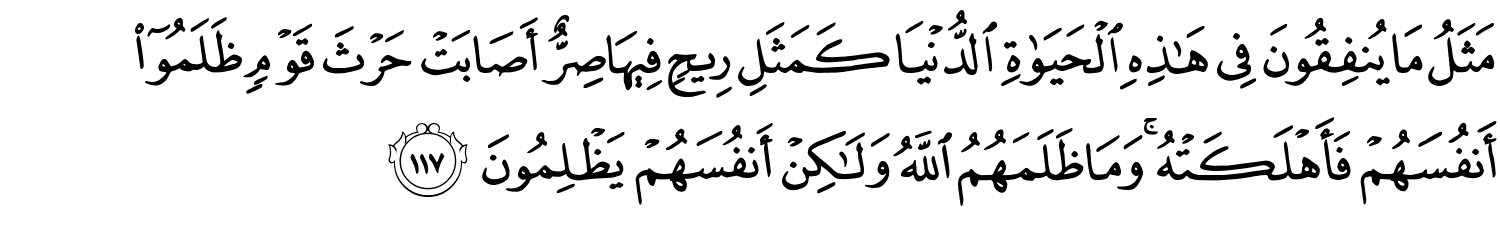 مَثَلُ مَا يُنفِقُونَ فِى هَـٰذِهِ ٱلْحَيَوٰةِ ٱلدُّنْيَا كَمَثَلِ رِيحٍ فِيهَا صِرٌّ أَصَابَتْ حَرْثَ قَوْمٍ ظَلَمُوٓا۟
أَنفُسَهُمْ فَأَهْلَكَتْهُ ۚ وَمَا ظَلَمَهُمُ ٱللَّهُ وَلَـٰكِنْ أَنفُسَهُمْ يَظْلِمُونَ ١١٧